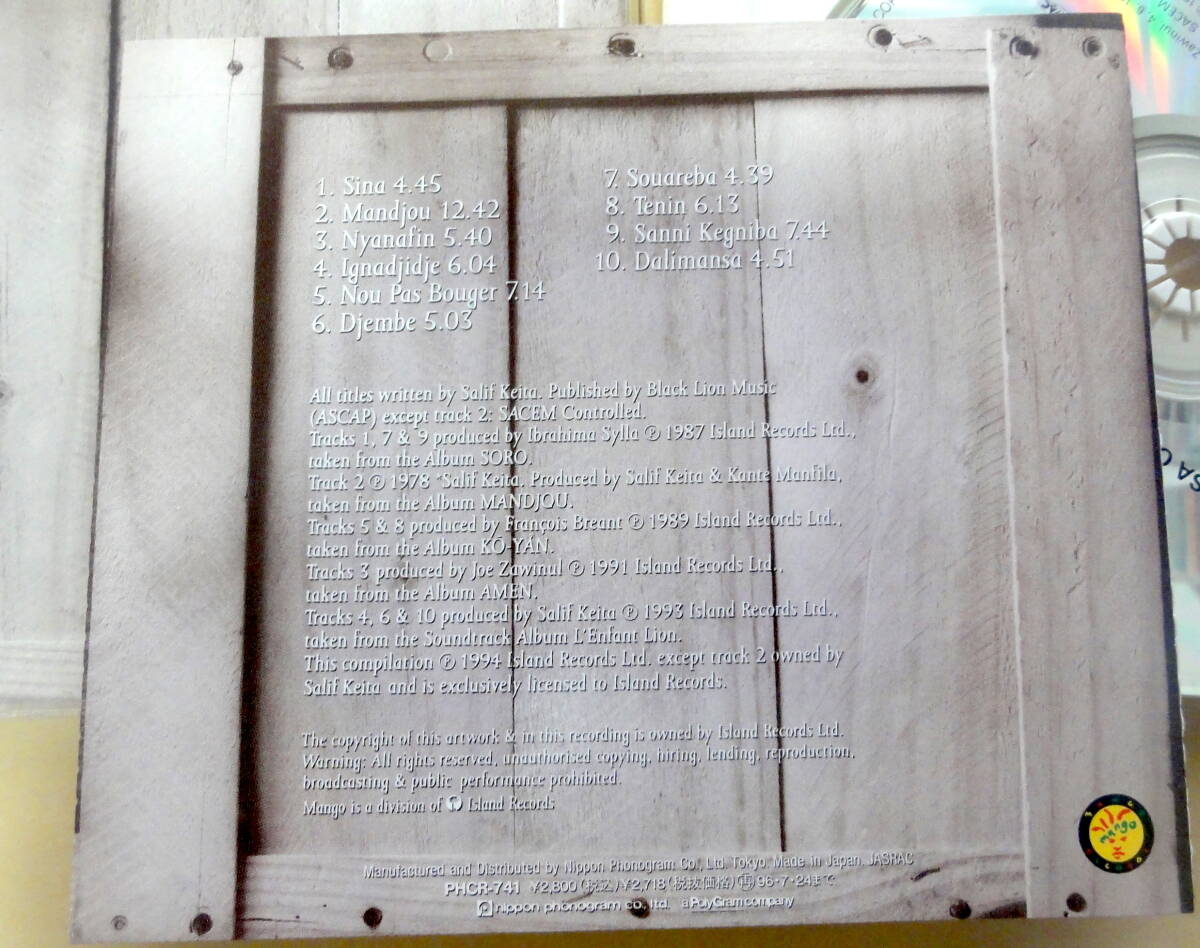 1. Sina 4.45
2. Mandjou 12.42
3. Nyanafin 5.40
4. Ignadjidje 6.04
5. Nou Pas Bouger 7.14
6. Djembe 5.03
7. Souareba 4.39
8. Tenin 6.13
9. Sanni Kegniba 7.44
10. Dalimansa 4.51
All titles written by Salif Keita. Published by Black Lion Music
(ASCAP) except track 2: SACEM Controlled.
Tracks 1, 7 & 9 produced by Ibrahima Sylla ℗ 1987 Island Records Ltd.,
taken from the Album SORO.
Track 2 ℗ 1978 "Salif Keita. Produced by Salif Keita & Kante Manfila,
taken from the Album MANDJOU.
Tracks 5 & 8 produced by François Breant ℗ 1989 Island Records Ltd.,
taken from the Album KÖ-YÁN.
Tracks 3 produced by Joe Zawinul ℗ 1991 Island Records Ltd.,
taken from the Album AMEN.
Tracks 4, 6 & 10 produced by Salif Keita ℗ 1993 Island Records Ltd.,
taken from the Soundtrack Album L'Enfant Lion.
This compilation ℗ 1994 Island Records Ltd. except track 2 owned by
Salif Keita and is exclusively licensed to Island Records.
The copyright of this artwork & in this recording is owned by Island Records Ltd.
Warning: All rights reserved, unauthorised copying, hiring, lending, reproduction,
broadcasting & public performance prohibited.
Mango is a division of Island Records
mango
Manufactured and Distributed by Nippon Phonogram Co., Ltd. Tokyo. Made in Japan. JASRAC
PHCR-741 ¥2,800(税込)/¥2,718(税抜価格) 96・7・24まで
nippon phonogram co., ltd. a PolyGram company